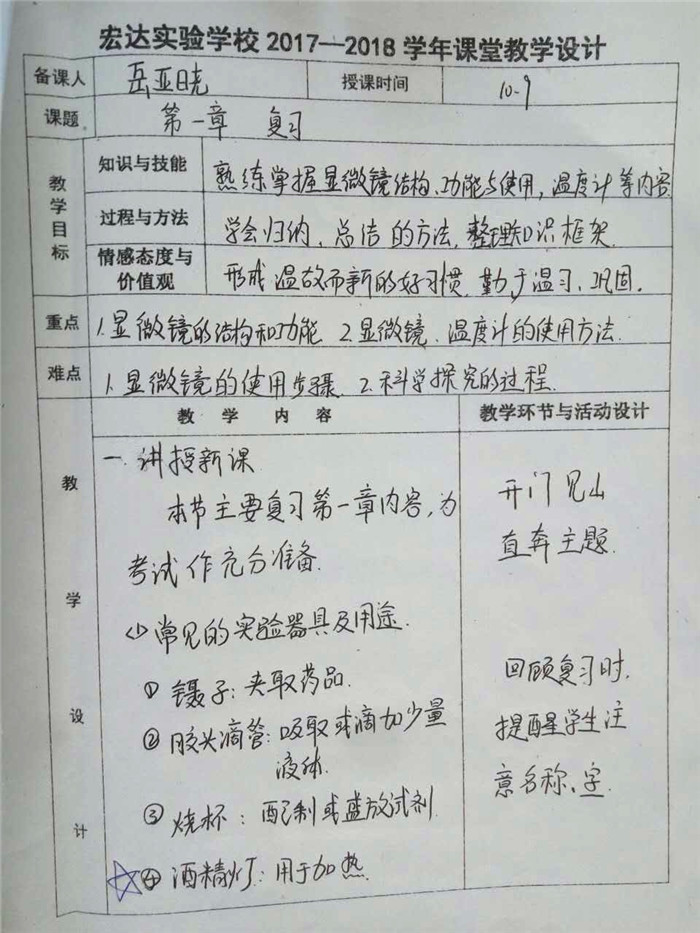 宏达实验学校2017—2018学年课堂教学设计
备课人 岳亚晓 授课时间 10-9
课题 第一章 复习
教学目标
知识与技能 熟练掌握显微镜结构、功能与使用，温度计等内容
过程与方法 学会归纳、总结的方法，整理知识框架.
情感态度与价值观 形成温故而新的好习惯，勤于温习、巩固.
重点 1.显微镜的结构和功能 2.显微镜、温度计的使用方法.
难点 1.显微镜的使用步骤. 2.科学探究的过程.
教学设计
教 学 内 容 教学环节与活动设计
一.讲授新课
本节主要复习第一章内容,为
考试作充分准备.
<1>常见的实验器具及用途.
① 镊子:夹取药品.
② 胶头滴管:吸取或滴加少量
液体.
③ 烧杯:配制或盛放试剂
☆④ 酒精灯:用于加热.
开门见山
直奔主题.
回顾复习时.
提醒学生注
意名称、字.